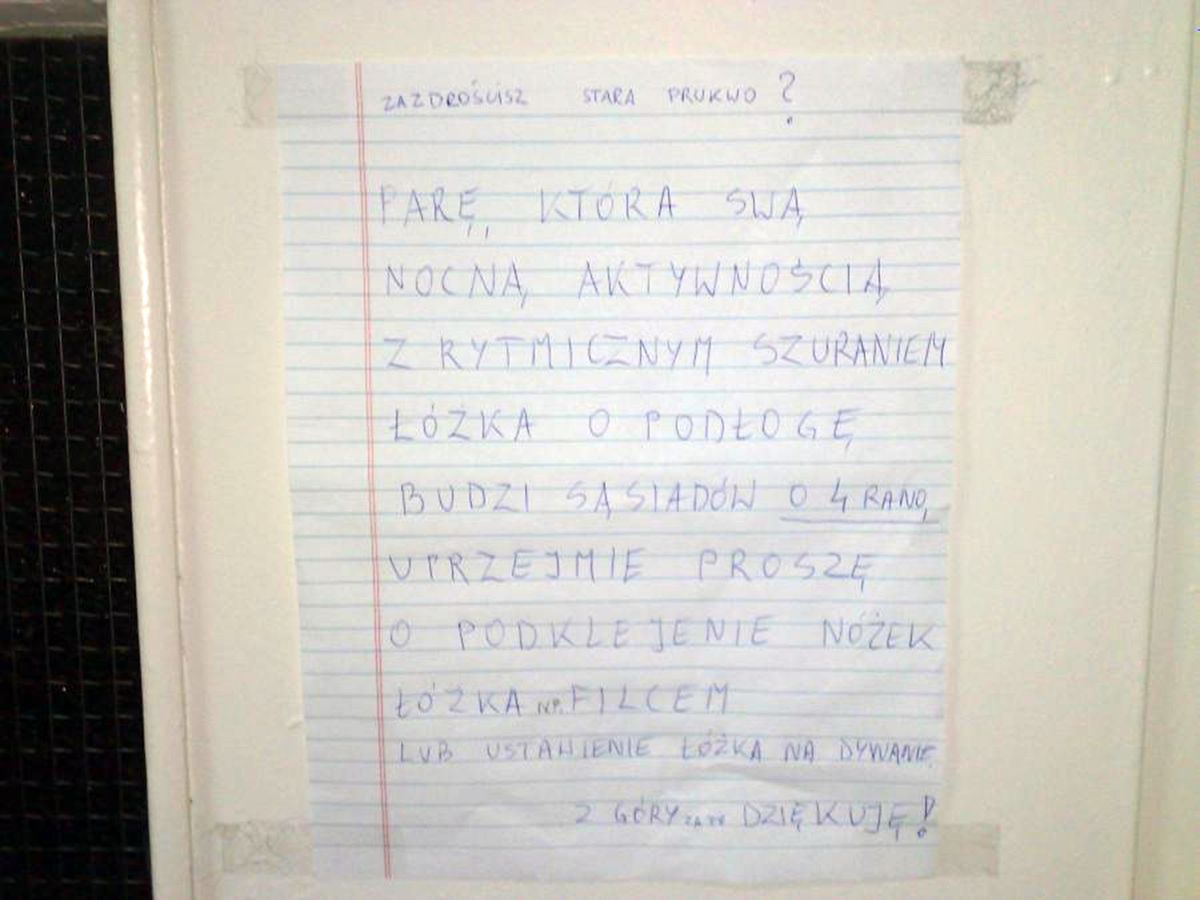 ZAZDROŚCISZ STARA PRUKWO?
PARĘ, KTÓRA SWĄ
NOCNĄ AKTYWNOŚCIĄ
Z RYTMICZNYM SZURANIEM
ŁÓŻKA O PODŁOGĘ
BUDZI SĄSIADÓW O 4 RANO,
UPRZEJMIE PROSZĘ
O PODKLEJENIE NÓŻEK
ŁÓŻKA NP. FILCEM
LUB USTAWIENIE ŁÓŻKA NA DYWANIE.
Z GÓRY ZA TO DZIĘKUJĘ!